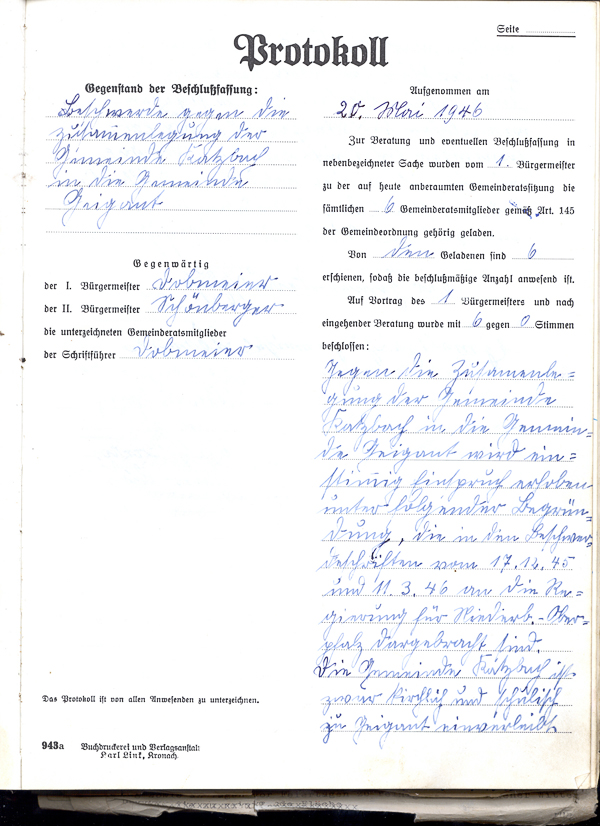 Seite
Protokoll
Gegenstand der Beschlußfassung:
Beschwerde gegen die
Zusamenlegung der
Gemeinde Katzbach
in die Gemeinde
Geigant
Gegenwärtig
der I. Bürgermeister Dobmeier
der II. Bürgermeister Schönberger
die unterzeichneten Gemeinderatsmitglieder
der Schriftführer Dobmeier
Das Protokoll ist von allen Anwesenden zu unterzeichnen.
943a Buchdruckerei und Verlagsanstalt
Karl Link, Kronach.
Aufgenommen am
20. Mai 1946
Zur Beratung und eventuellen Beschlußfassung in
nebenbezeichneter Sache wurden vom 1. Bürgermeister
zu der auf heute anberaumten Gemeinderatssitzung die
sämtlichen 6 Gemeinderatsmitglieder gemäß Art. 145
der Gemeindeordnung gehörig geladen.
Von den Geladenen sind 6
erschienen, sodaß die beschlußmäßige Anzahl anwesend ist.
Auf Vortrag des 1 Bürgermeisters und nach
eingehender Beratung wurde mit 6 gegen 0 Stimmen
beschlossen:
Gegen die Zusamenle=
gung der Gemeinde
Katzbach in die Gemein=
de Geigant wird ein=
stimmig Einspruch erhoben
unter folgender Begrün=
dung, die in den Beschwer=
deschriften vom 17.12.45
und 11.3.46 an die Re=
gierung für Niederb.-Ober=
pfalz dargebracht sind.
Die Gemeinde Katzbach ist
zwar kirchlich und schulisch
zu Geigant einverleibt.